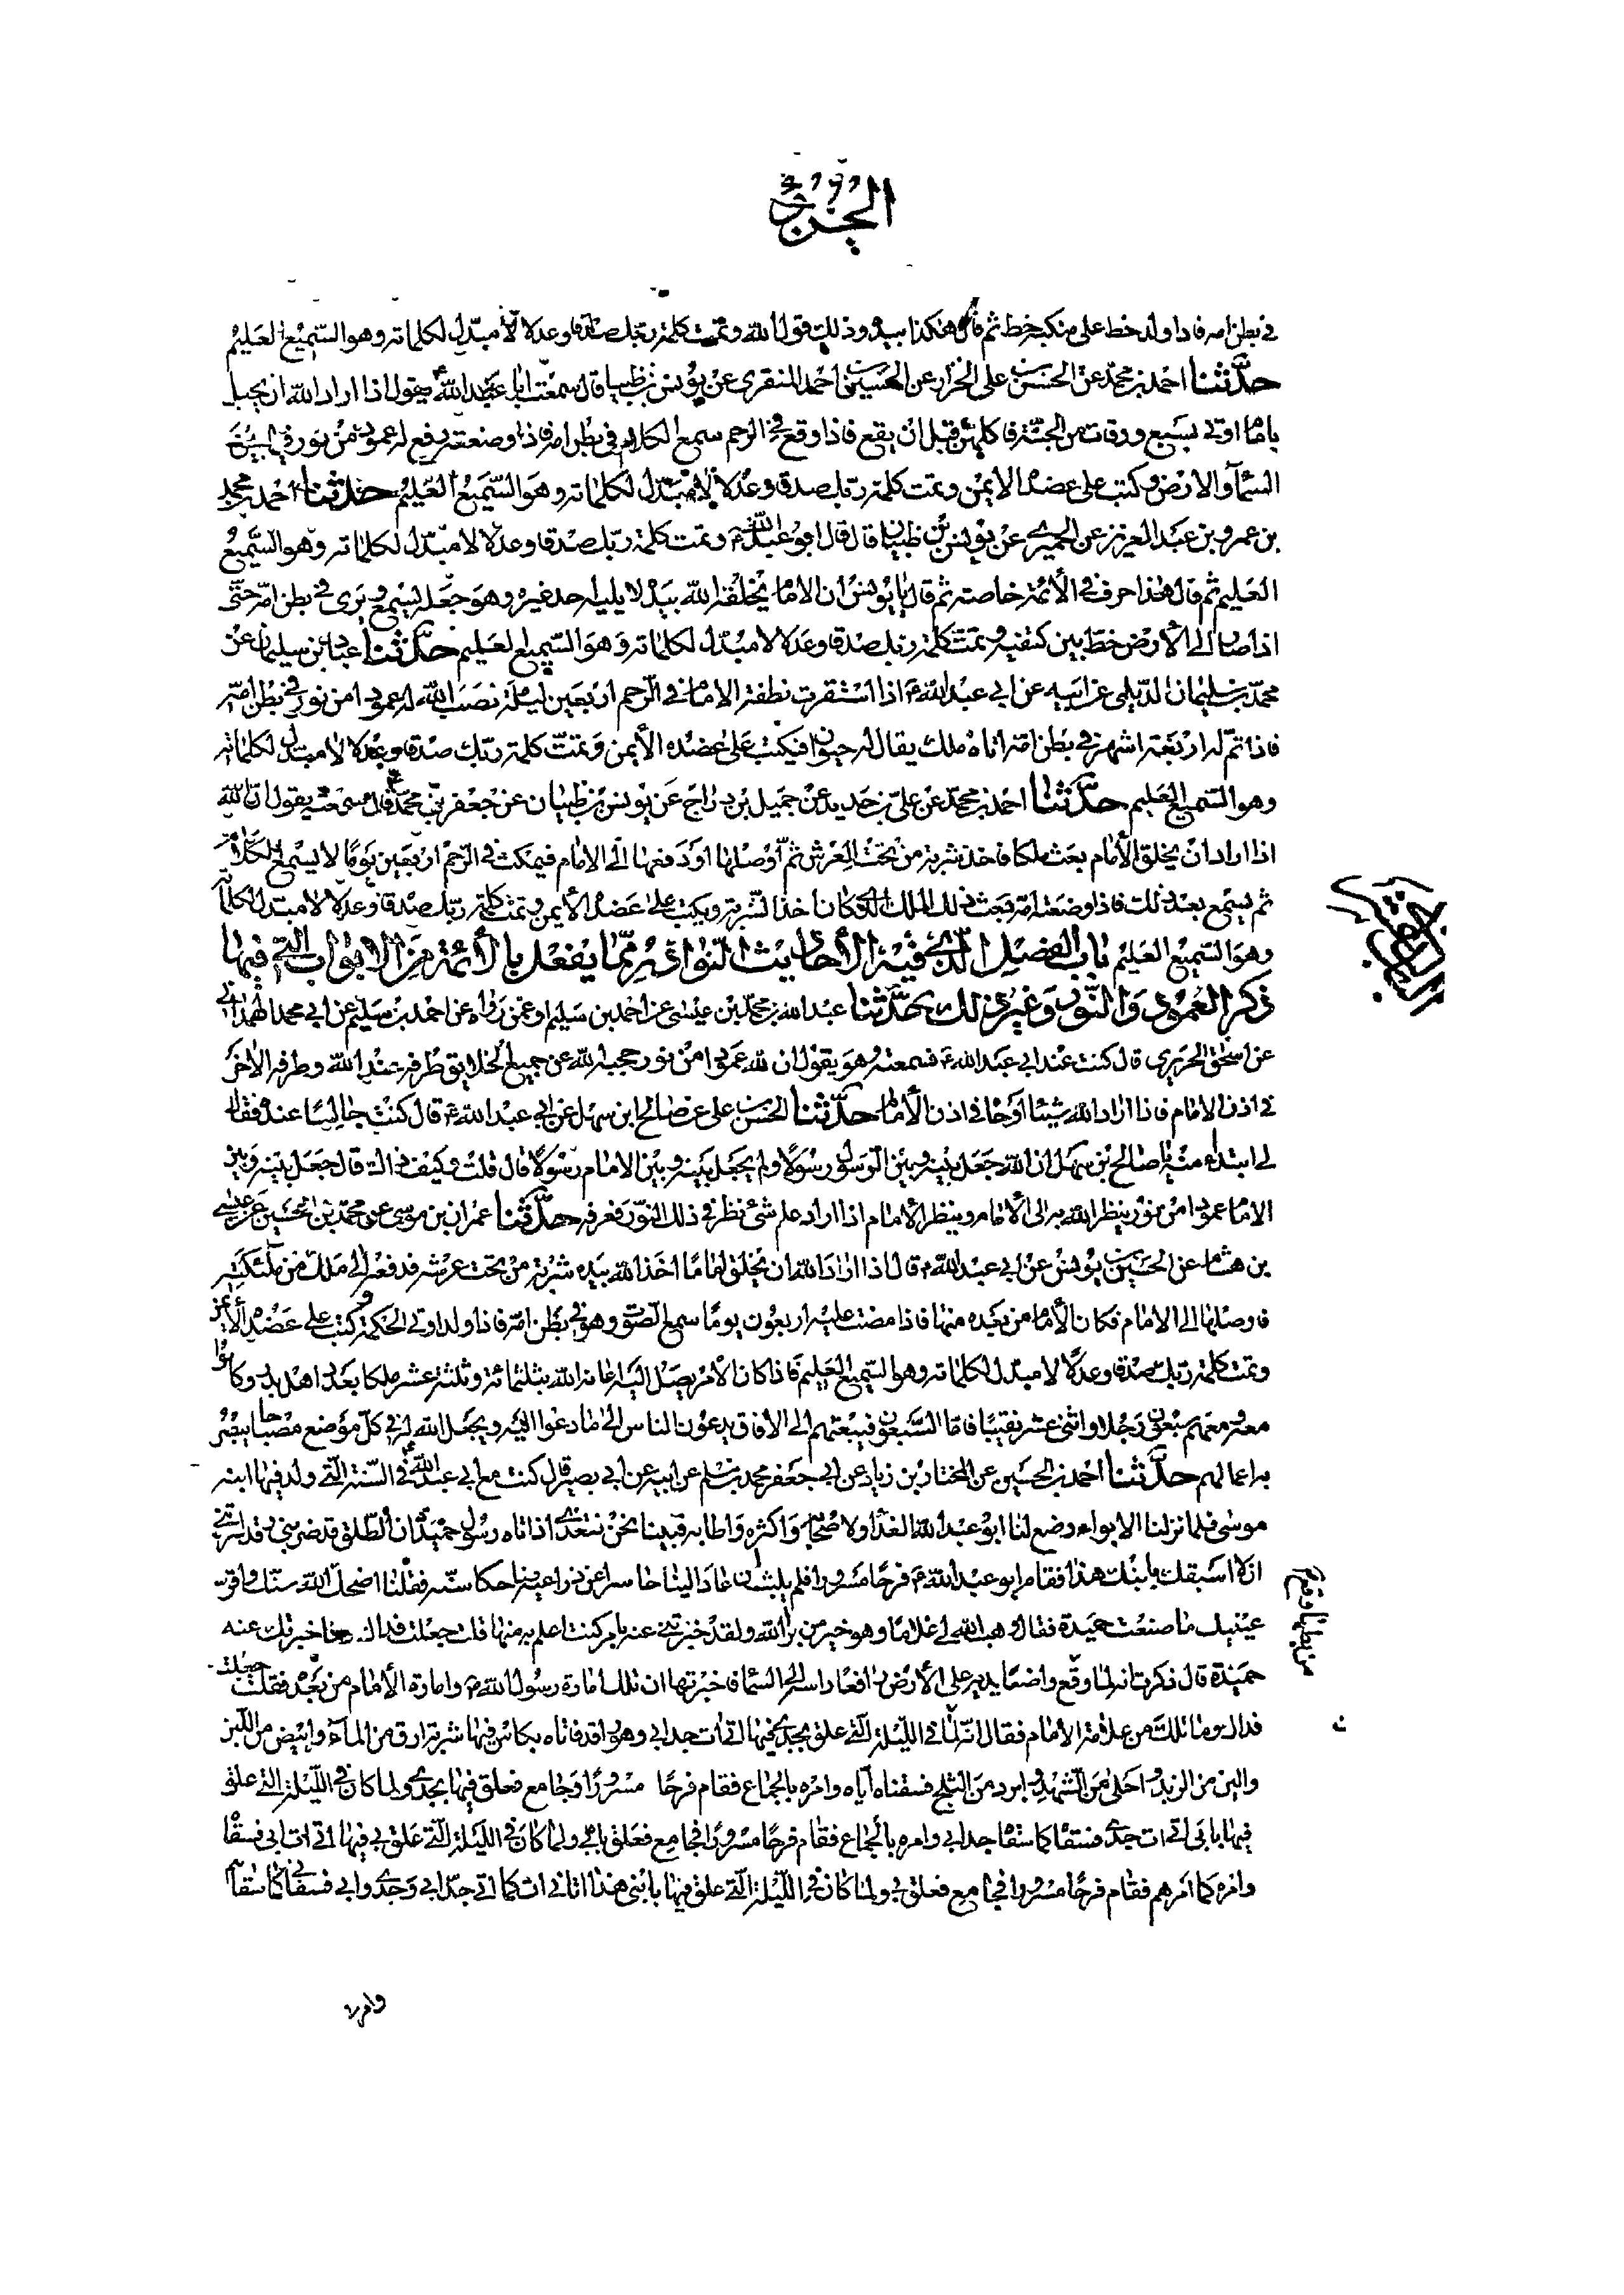 الجزء
في بطن امه فاذا ولد خط على منكبه خط ثم قال هكذا بيده وذلك قول الله وتمت كلمة ربك صدقا وعدلا لا مبدل لكلماته وهو السميع العليم
حدثنا احمد بن محمد عن الحسن بن علي الخزاز عن الحسين بن احمد المنقري عن يونس بن ظبيان قال سمعت ابا عبد الله ع يقول اذا اراد الله ان يحبل
بامام اوتي بسبع ورقات من الجنة فاكلهن قبل ان يقع فاذا وقع في الرحم سمع الكلام في بطن امه فاذا وضعته رفع له عمود من نور فيما بين
السماء والارض وكتب على عضده الايمن وتمت كلمة ربك صدقا وعدلا لا مبدل لكلماته وهو السميع العليم حدثنا احمد بن محمد
بن عمرو بن عبد العزيز عن الحميري عن يونس بن ظبيان قال قال ابو عبد الله ع وتمت كلمة ربك صدقا وعدلا لا مبدل لكلماته وهو السميع
العليم ثم قال هذا حرف في الأئمة خاصة ثم قال يا يونس ان الامام يخلقه الله بيده لا يليه احد غيره وهو جعله يسمع ويرى في بطن امه حتى
اذا صار الى الأرض خط بين كتفيه وتمت كلمة ربك صدقا وعدلا لا مبدل لكلماته وهو السميع العليم حدثنا عباد بن سليمان عن
محمد بن سليمان الديلمي عن ابيه عن ابي عبد الله ع اذا استقرت نطفة الامام في الرحم اربعين ليلة نصب الله له عمودا من نور في بطن امه
فاذا تم له اربعة اشهر في بطن امه اتاه ملك يقال له حيوان فيكتب على عضده الأيمن وتمت كلمة ربك صدقا وعدلا لا مبدل لكلماته
وهو السميع العليم حدثنا احمد بن محمد عن علي بن حديد عن جميل بن دراج عن يونس بن ظبيان عن جعفر بن محمد ع قال سمعته يقول ان الله
اذا اراد ان يخلق الأمام بعث ملكا فاخذ شربة من تحت العرش ثم أوصلها او دفعها الى الامام فيمكث في الرحم اربعين يوما لا يسمع الكلام
ثم يسمع بعد ذلك فاذا وضعته امه بعث ذلك الملك الذي كان اخذ الشربة ويكتب على عضده الأيمن وتمت كلمة ربك صدقا وعدلا لا مبدل لكلماته
وهو السميع العليم باب الفصل الذي فيه الأحاديث النوادر مما يفعل بالأئمة من الابواب التي فيها
ذكر العمود والنور وغير ذلك حدثنا عبد الله بن محمد بن عيسى عن احمد بن سليم او عمن رواه عن احمد بن سليم عن ابي محمد الهمداني
عن اسحق الحريري قال كنت عند ابي عبد الله ع فسمعته وهو يقول ان لله عمودا من نور حجبه الله عن جميع الخلايق طرفه عند الله وطرفه الاخر
في اذن الامام فاذا اراد الله شيئا أوحاه في اذن الأمام حدثنا الحسن بن علي عن صالح ابن سهل عن ابي عبد الله ع قال كنت جالسا عنده فقال
لي ابتداء منه يا صالح بن سهل ان الله جعل بينه وبين الرسول رسولا ولم يجعل بينه وبين الامام رسولا قال قلت وكيف ذاك قال جعل بينه وبين
الامام عمودا من نور ينظر الله به الى الأمام وينظر الأمام اذا اراد علم شئ نظر في ذلك النور فعرفه حدثنا عمران بن موسى عن محمد بن الحسين عن عيسى
بن هشام عن الحسين بن يونس عن ابي عبد الله ع قال اذا اراد الله ان يخلق اماما اخذ الله بيده شربة من تحت عرشه فدفعه الى ملك من ملئكته
فاوصلها الى الامام فكان الأمام من بعده منها فاذا مضت عليه اربعون يوما سمع الصوت وهو في بطن امه فاذا ولد اوتي الحكمة وكتب على عضده الأيمن
وتمت كلمة ربك صدقا وعدلا لا مبدل لكلماته وهو السميع العليم فاذا كان الأمر يصل اليه اعانه الله بثلثمائة وثلثة عشر ملكا بعدد اهل بدر وكانوا
معه ومعهم سبعون رجلا واثنى عشر نقيبا فاما السبعون فيبعثهم الى الافاق يدعون الناس الى ما دعوا اليه ويجعل الله له في كل موضع مصباحا يبصر
به اعمالهم حدثنا احمد بن الحسين عن المختار بن زياد عن ابي جعفر محمد بن سليم عن ابيه عن ابي بصير قال كنت مع ابي عبد الله ع في السنة التي ولد فيها ابنه
موسى فلما نزلنا الابواء وضع لنا ابو عبد الله الغداء ولاصحابه واكثره واطابه فبينا نحن نتغدى اذ اتاه رسول حميدة ان الطلق قد ضربني وقد امرتني
ان لا اسبقك بابنك هذا فقام ابو عبد الله ع فرحا مسرورا فلم يلبث ان عاد الينا حاسرا عن ذراعيه ضاحكا سنه فقلنا اضحك الله سنك واقر
عينيك ما صنعت حميدة فقال وهب الله لي غلاما وهو خير من برأ الله ولقد خبرتني عنه بامر كنت اعلم به منها قلت جعلت فداك وما خبرتك عنه
حميدة قال ذكرت انه لما وقع واضعا يديه على الأرض رافعا راسه الى السماء فاخبرتها ان تلك امارة رسول الله ص وامارة الأمام من بعده فقلت جعلت
فداك وما تلك من علامة الامام فقال انه لما كان في الليلة التي علق بجدي فيها اتى ات جد ابي وهو راقد فاتاه بكاس فيها شربة ارق من الماء وابيض من اللبن
والين من الزبد واحلى من الشهد وابرد من الثلج فسقاه اياه وامره بالجماع فقام فرحا مسرورا وجامع فعلق فيها بجدي ولما كان في الليلة التي علق
فيها بابي اتى ات جدي فسقاه كما سقا جد ابي وامره بالجماع فقام فرحا مسرورا فجامع فعلق بابي ولما كان في الليلة التي علق بي فيها اتى ات ابي فسقاه
وامره كما امرهم فقام فرحا مسرورا فجامع فعلق بي ولما كان في الليلة التي علق فيها بابني هذا اتاني ات كما اتى جد ابي وجدي وابي فسقاني كما سقاهم
من بطنها وقع
وامرني